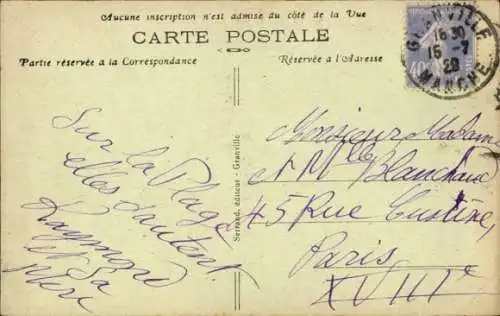 Aucune inscription n'est admise du côté de la Vue
CARTE POSTALE
Partie réservée a la Correspondance
Réservée a l'Adresse
GRANVILLE
16 30
15 - 7
29
MANCHE
40
Sur la Plage
elles sautent
Raymond
et sa
mère
Serraud, éditeur - Granville
Monsieur Madame
et Mlle Blanchard
45 Rue Custine,
Paris
XVIIIe